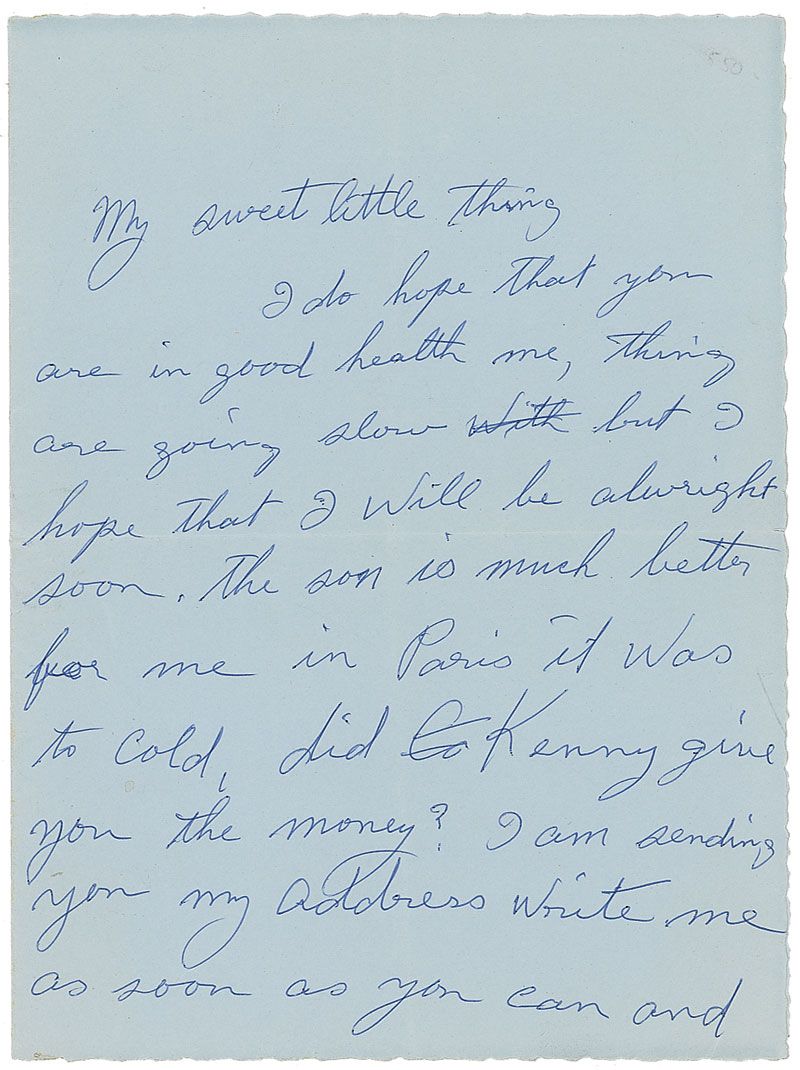 550
My sweet little thing
I do hope that you
are in good health me, thing
are going slow with but I
hope that I will be alwright
soon. The son is much better
for me in Paris it was
to cold, did Kenny give
you the money? I am sending
you my address write me
as soon as you can and